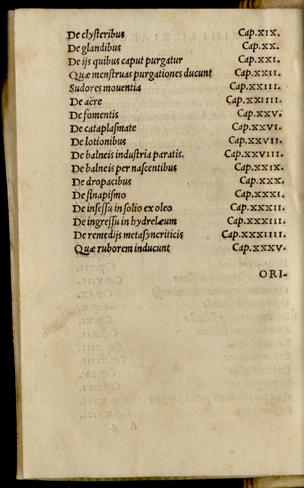 De clysteribus Cap.XIX.
De glandibus Cap.XX.
De ijs quibus caput purgatur Cap.XXI.
Quæ menstruas purgationes ducunt Cap.XXII.
Sudores mouentia Cap.XXIII.
De aere Cap.XXIIII.
De fomentis Cap.XXV.
De cataplasmate Cap.XXVI.
De lotionibus Cap.XXVII.
De balneis industria paratis. Cap.XXVIII.
De balneis per nascentibus Cap.XXIX.
De dropacibus Cap.XXX.
De sinapismo Cap.XXXI.
De insessu in solio ex oleo Cap.XXXII.
De ingressu in hydrelæum Cap.XXXIII.
De remedijs metasyncriticis Cap.XXXIIII.
Quæ ruborem inducunt Cap.XXXV.
ORI-